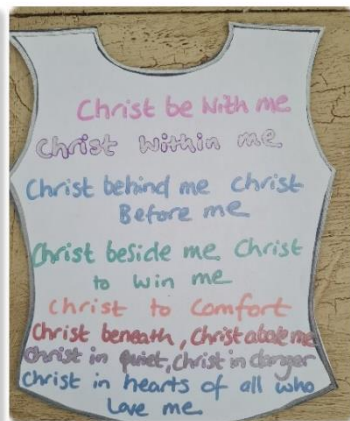 Christ be With me
Christ Within me
Christ behind me Christ
Before me
Christ beside me Christ
to win me
Christ to Comfort
Christ beneath, Christ above me
Christ in quiet, Christ in danger
Christ in hearts of all who
Love me